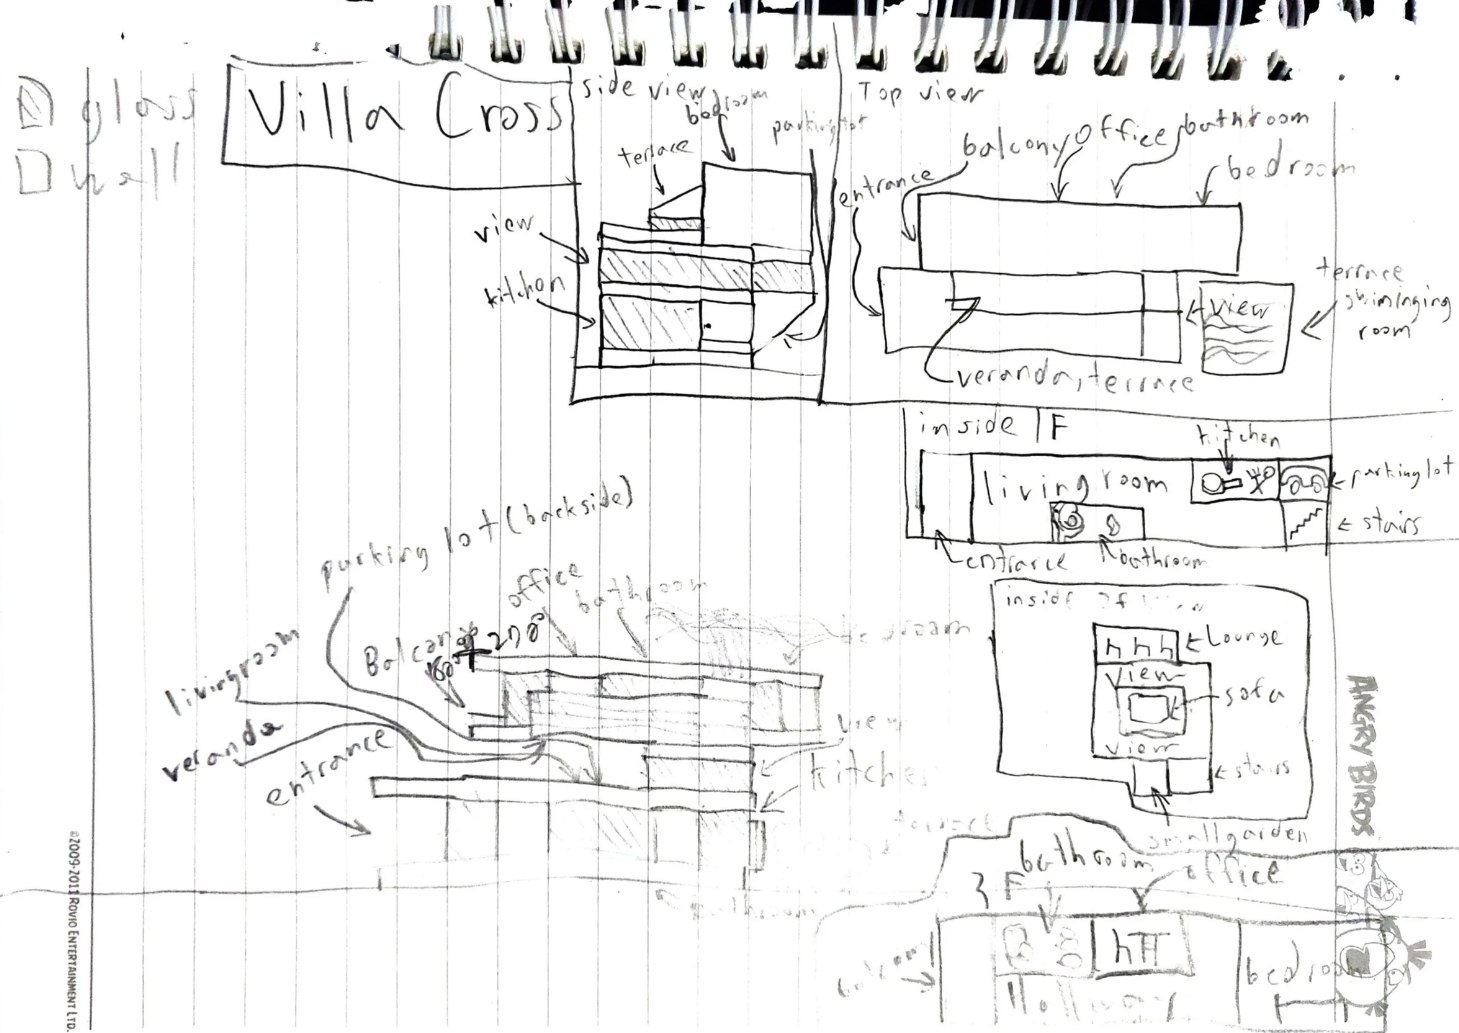 glass
wall
Villa Cross
side view
bedroom
parking lot
terrace
view
kitchen
Top view
balcony
office
bathroom
bedroom
entrance
view
terrace
swiminging
room
veranda, terrace
inside 1F
kitchen
livingroom
parkinglot
stairs
entrance
bathroom
inside of view
Lounge
view
sofa
view
stairs
small garden
parking lot (backside)
office
bathroom
bedroom
Balcony
270°
180°
livingroom
veranda
entrance
view
kitchen
bathroom
3F
bathroom
office
balcony
bedroom
Hallway
ANGRY BIRDS
©2009-2011 ROVIO ENTERTAINMENT LTD.